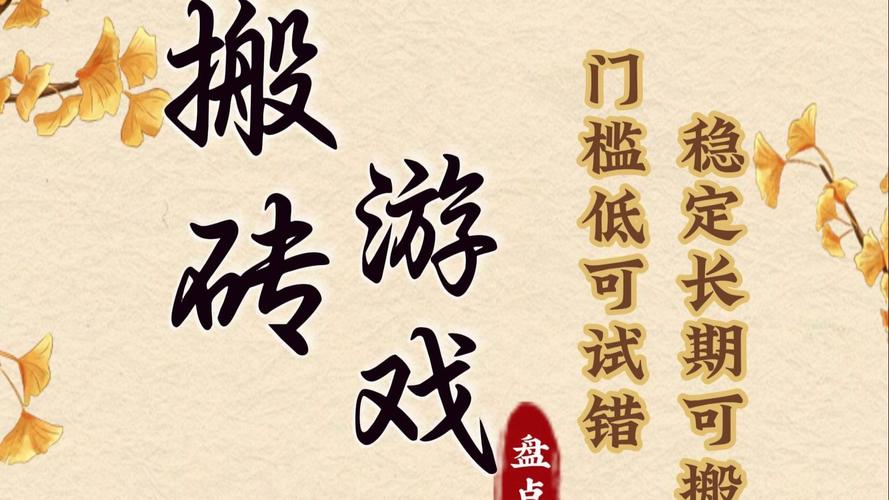 搬砖
游戏
盘点
门槛低可试错
稳定长期可搬